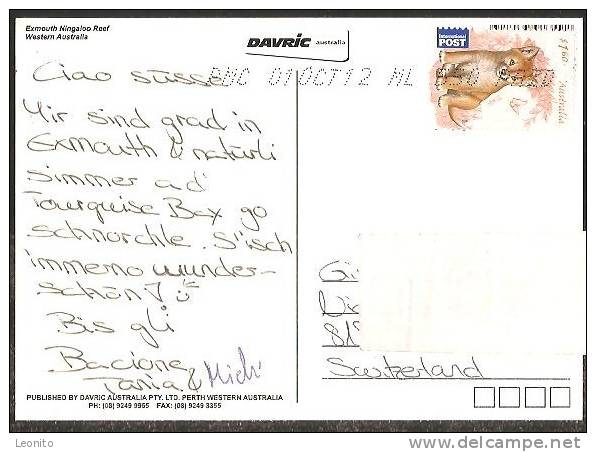 Exmouth Ningaloo Reef
Western Australia
DAVRIC australia
International
POST
$1.60
Australia
BMC 01OCT12 ML
Ciao süsse
Mir sind grad in
Exmouth & natürli
simmer a d'
Tourquise Bay go
schnorchle. S'isch
immerno wunder-
schön!
Bis gli
Bacione
Tania &
Switzerland
PUBLISHED BY DAVRIC AUSTRALIA PTY. LTD. PERTH WESTERN AUSTRALIA
PH: (08) 9249 9955 FAX: (08) 9249 3355
Leonito
delcampe.net